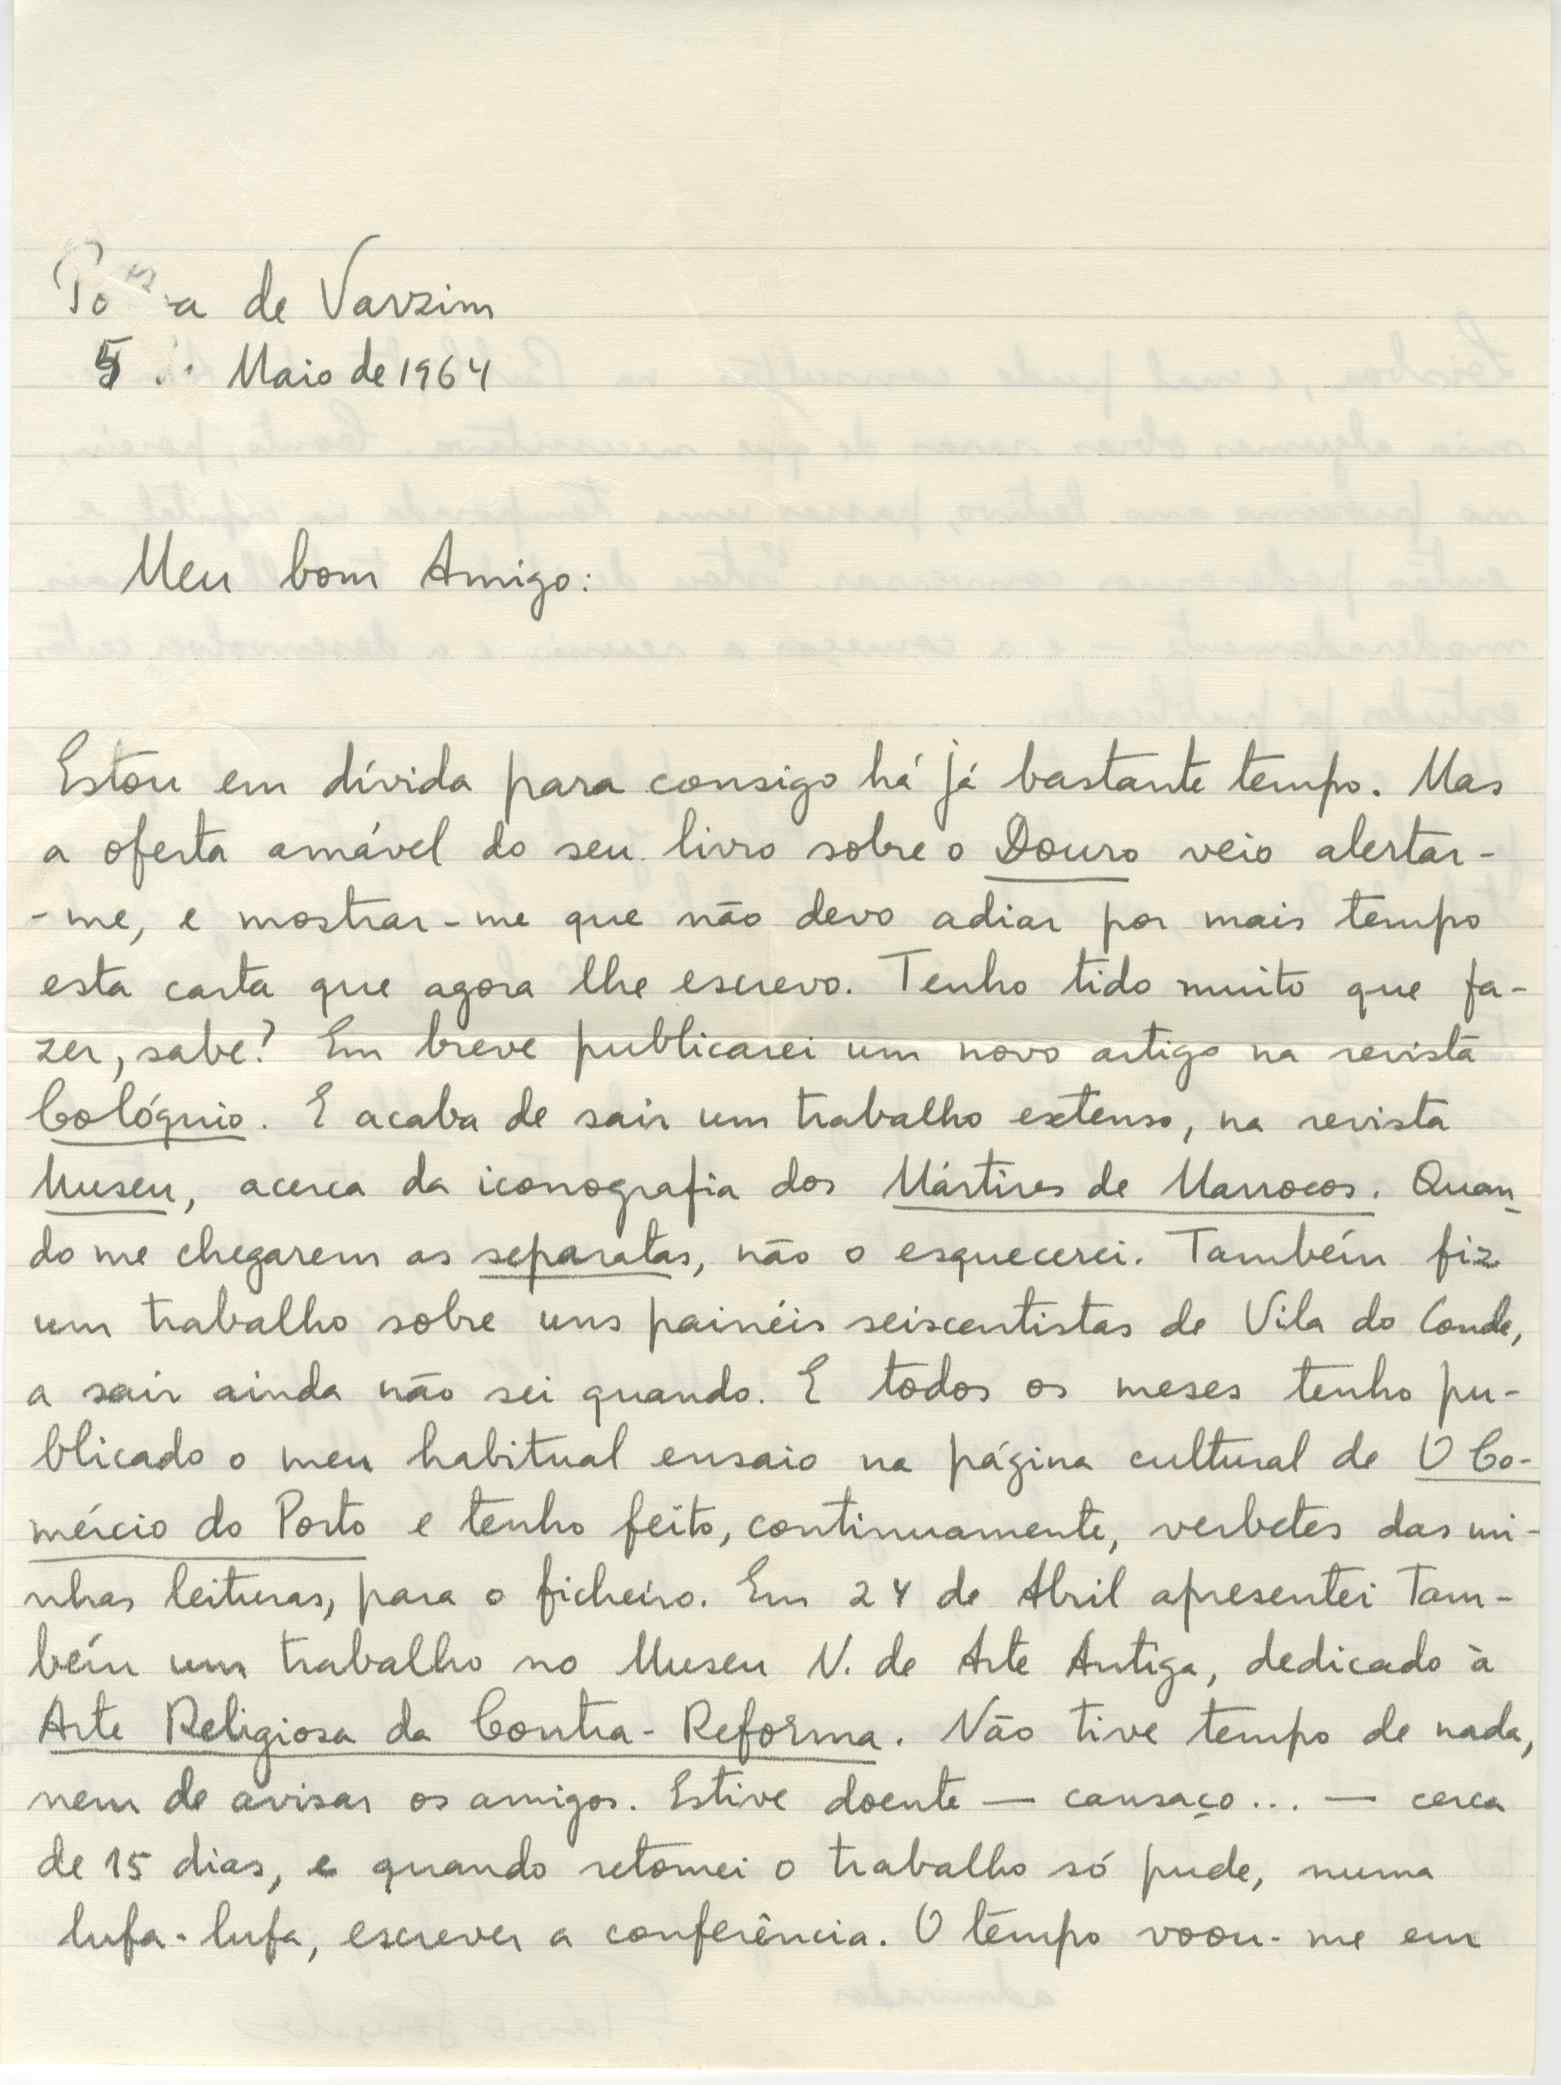 Póvoa de Varzim
5 de Maio de 1964
Meu bom Amigo:
Estou em dívida para consigo há já bastante tempo. Mas
a oferta amável do seu livro sobre o Douro veio alertar-
-me, e mostrar-me que não devo adiar por mais tempo
esta carta que agora lhe escrevo. Tenho tido muito que fa-
zer, sabe? Em breve publicarei um novo artigo na revista
Colóquio. E acaba de sair um trabalho extenso, na revista
Museu, acerca da iconografia dos Mártires de Marrocos. Quan-
do me chegarem as separatas, não o esquecerei. Também fiz
um trabalho sobre uns painéis seiscentistas de Vila do Conde,
a sair ainda não sei quando. E todos os meses tenho pu-
blicado o meu habitual ensaio na página cultural de O Co-
mércio do Porto e tenho feito, continuamente, verbetes das mi-
nhas leituras, para o ficheiro. Em 24 de Abril apresentei tam-
bém um trabalho no Museu N. de Arte Antiga, dedicado à
Arte Religiosa da Contra-Reforma. Não tive tempo de nada,
nem de avisar os amigos. Estive doente — cansaço... — cerca
de 15 dias, e quando retomei o trabalho só pude, numa
lufa-lufa, escrever a conferência. O tempo voou-me em